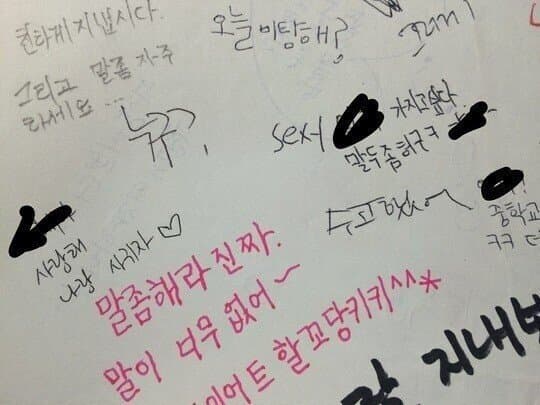 지냅시다.
그리고 말좀 자주
하세요...
오늘 미팅해?
뉴규?
sexy
가지고싶다
말두좀하구ㅋ
수고했어
중학교
ㅋㅋ
사랑해
나랑 사귀자♡
말좀해라 진짜.
말이 너무 없어~
이어트 할꼬당키키^^*
지내